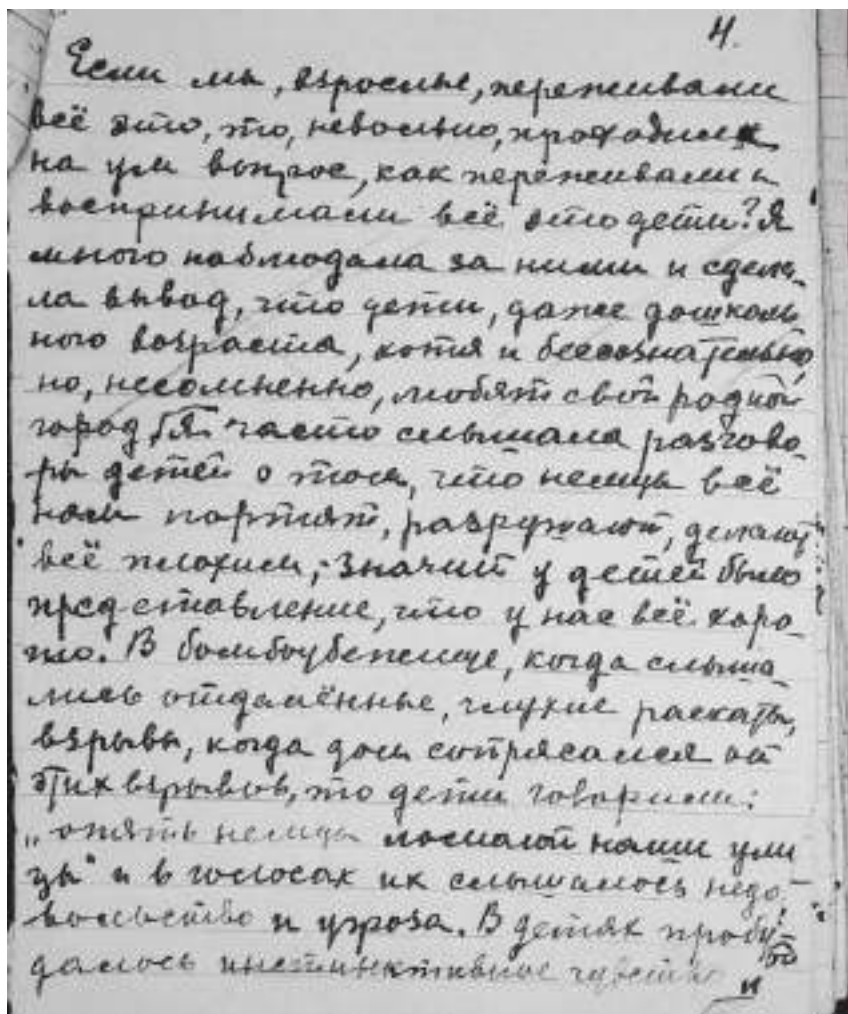 4.
Если мы, взрослые, переживали
всё это, то, невольно, проходил
на ум вопрос, как переживали и
воспринимали всё это дети? Я
много наблюдала за ними и сдела-
ла вывод, что дети, даже дошколь
ного возраста, хотя и бессознатель
но, несомненно, любят свой родной
город. Я часто слышала разгово-
ры детей о том, что немцы всё
нам портят, разрушают, делают
всё плохим; значит у детей было
представление, что у нас всё хоро-
шо. В бомбоубежище, когда слыша-
лись отдалённые, глухие раскаты,
взрывы, когда дом сотрясался от
этих взрывов, то дети говорили:
„опять немцы ломают наши ули
цы" и в голосах их слышалось недо-
вольство и угроза. В детях пробу-
ждалось инстинктивное чувство
и